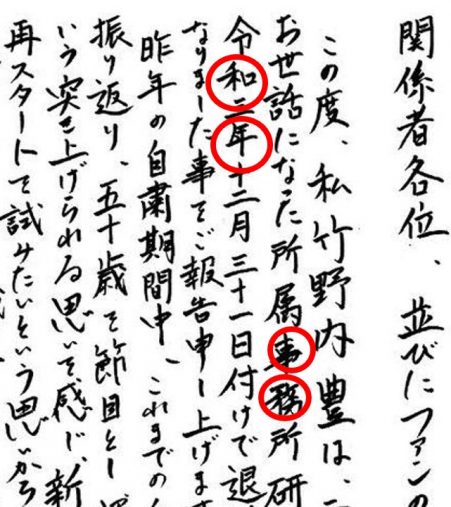 関係者各位、並びにファンの
この度、私竹野内豊は、
お世話になった所属事務所研
令和二年十二月三十一日付けで退
なりました事をご報告申し上げます
昨年の自粛期間中、これまでの
振り返り、五十歳を節目とし
いう突き上げられる思いを感じ、新
再スタートを試みたいという思いから